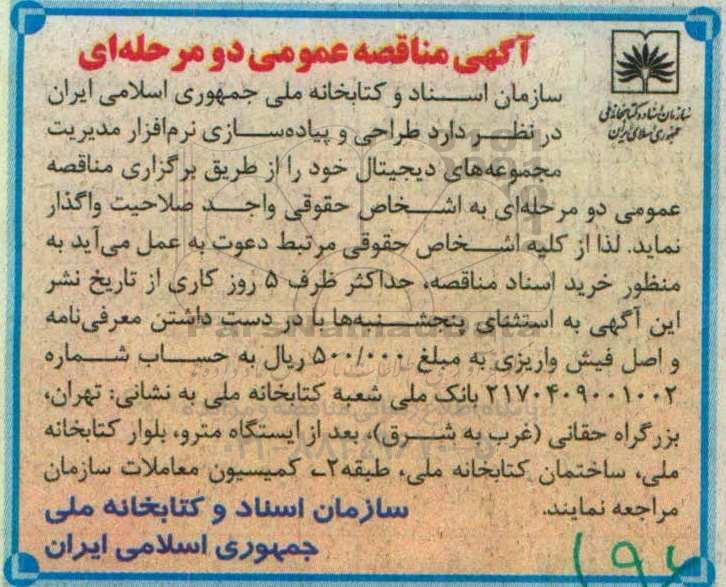 آگهی مناقصه عمومی دو مرحله‌ای
سازمان اسناد و کتابخانه ملی
جمهوری اسلامی ایران
سازمان اسناد و کتابخانه ملی جمهوری اسلامی ایران
در نظر دارد طراحی و پیاده‌سازی نرم‌افزار مدیریت
مجموعه‌های دیجیتال خود را از طریق برگزاری مناقصه
عمومی دو مرحله‌ای به اشخاص حقوقی واجد صلاحیت واگذار
نماید. لذا از کلیه اشخاص حقوقی مرتبط دعوت به عمل می‌آید به
منظور خرید اسناد مناقصه، حداکثر ظرف ۵ روز کاری از تاریخ نشر
این آگهی به استثنای پنجشنبه‌ها با در دست داشتن معرفی‌نامه
و اصل فیش واریزی به مبلغ ۵۰۰/۰۰۰ ریال به حساب شماره
۲۱۷۰۴۰۹۰۰۱۰۰۲ بانک ملی شعبه کتابخانه ملی به نشانی: تهران،
بزرگراه حقانی (غرب به شرق)، بعد از ایستگاه مترو، بلوار کتابخانه
ملی، ساختمان کتابخانه ملی، طبقه۲ـ کمیسیون معاملات سازمان
مراجعه نمایند.
سازمان اسناد و کتابخانه ملی
جمهوری اسلامی ایران
ParsNamadData